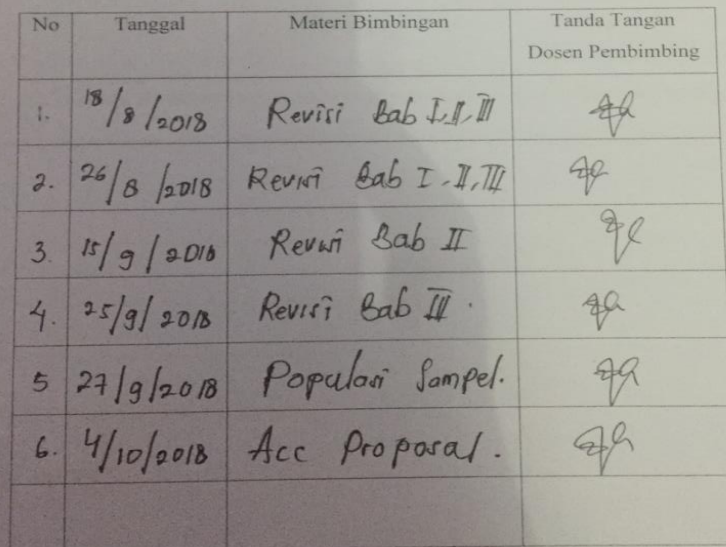 No Tanggal Materi Bimbingan Tanda Tangan Dosen Pembimbing
1. 18/8/2018 Revisi Bab I,II,III
2. 26/8/2018 Revisi Bab I,II,III
3. 15/9/2018 Revisi Bab II
4. 25/9/2018 Revisi Bab III.
5 27/9/2018 Populasi Sampel.
6. 4/10/2018 Acc Proposal.